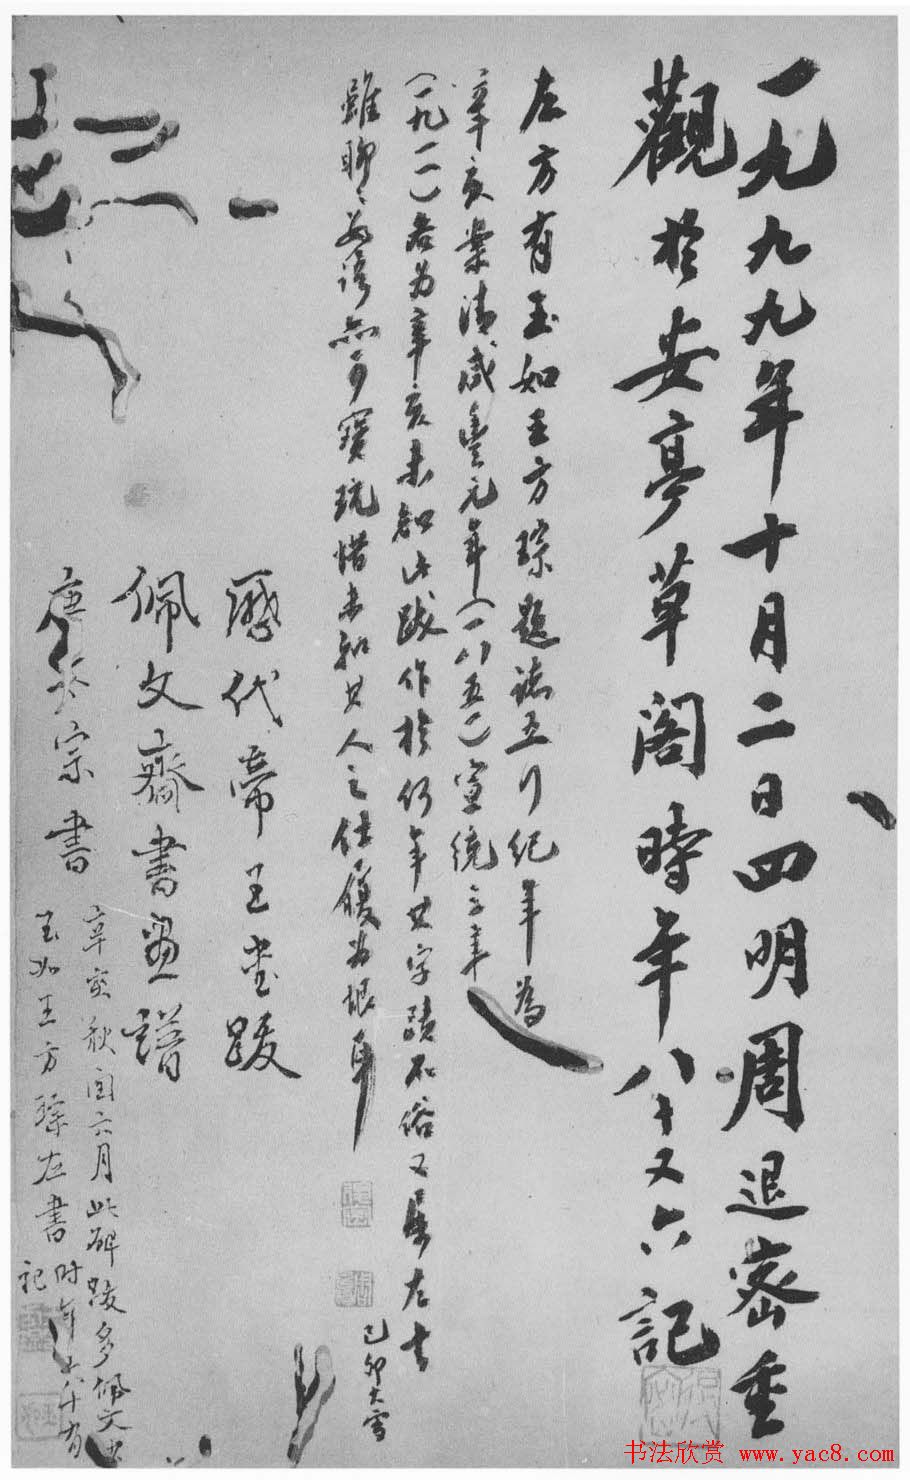 一九九九年十月二日四明周退密重
觀於安亭草閣時年八十又六記
左方有玉如王方琮題識五行紀年為
辛亥案清咸豐元年（一八五一）宣統三年
（一九一一）各為辛亥未知此跋作於何年其字蹟不俗又屬左書
雖聊聊數語亦可寶玩惜未知其人之仕履為恨耳
己卯大雪
歷代帝王書跋
佩文齋書畫譜
唐太宗書
辛亥秋閏六月此碑跋多佩文
玉如王方琮左書時年六十有
記
书法欣赏 www.yac8.com